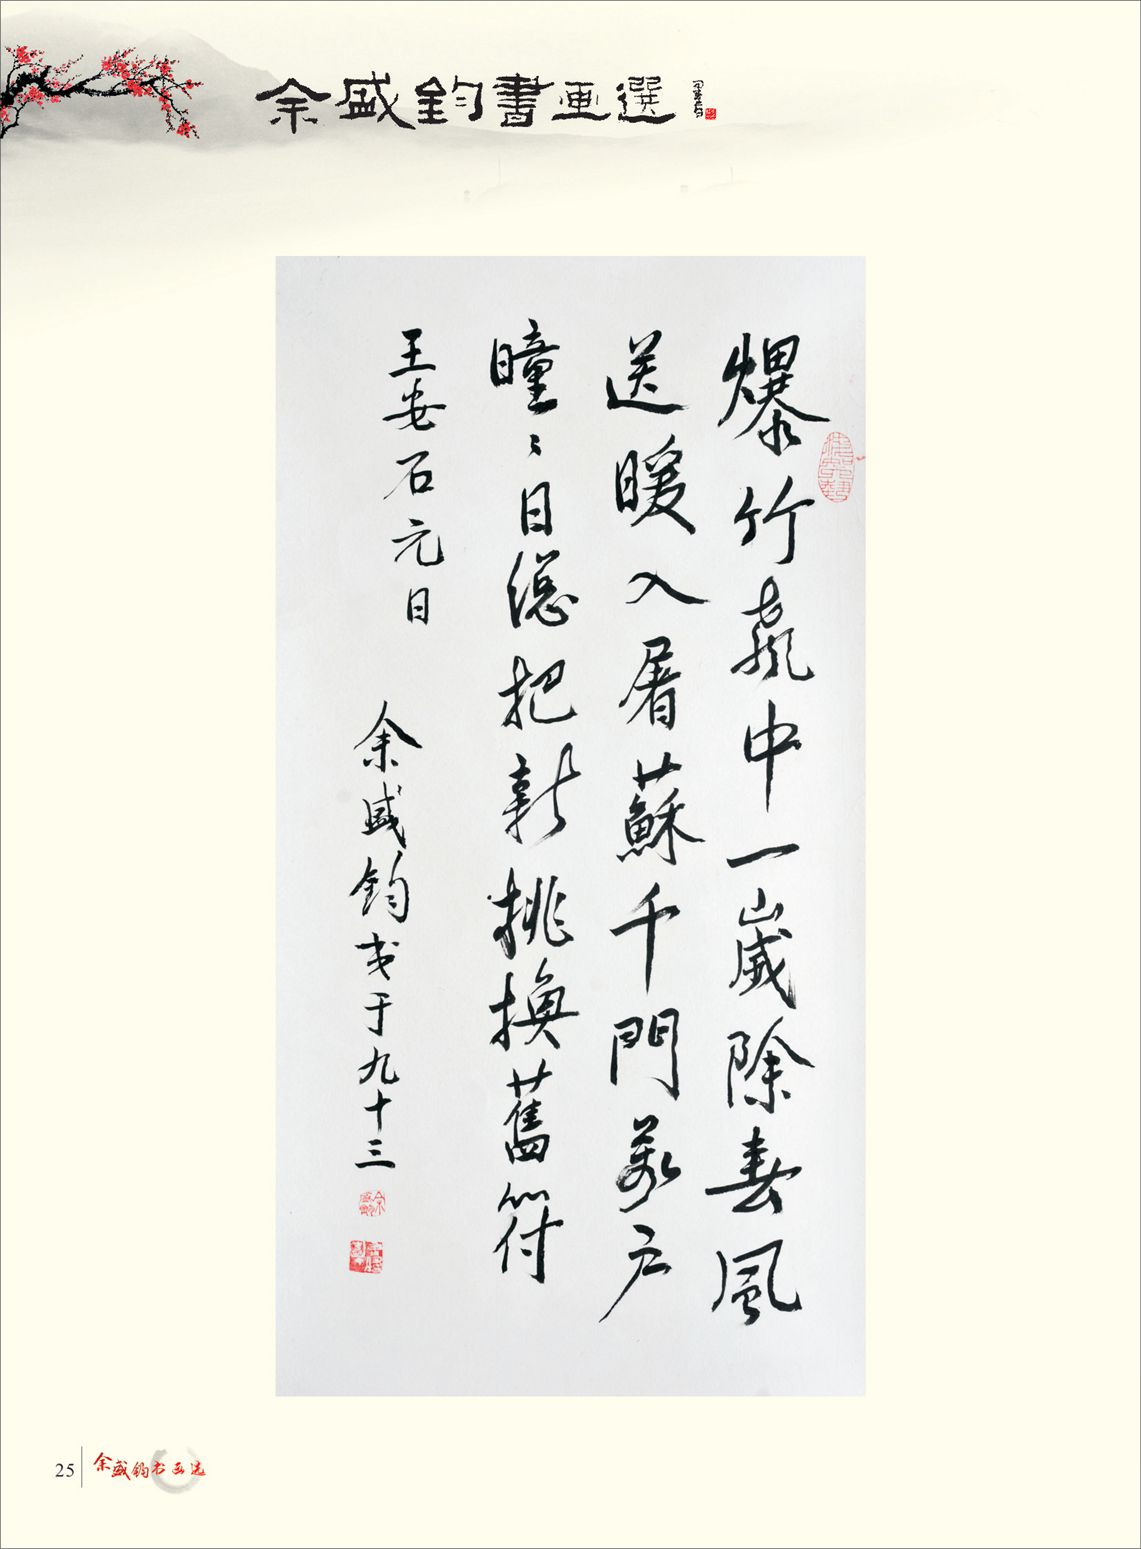 余盛鈞書画選
爆竹聲中一歲除春風
送暖入屠蘇千門萬戶
曈〻日總把新桃換舊符
王安石元日
余盛鈞书于九十三
25
余盛钧书画选